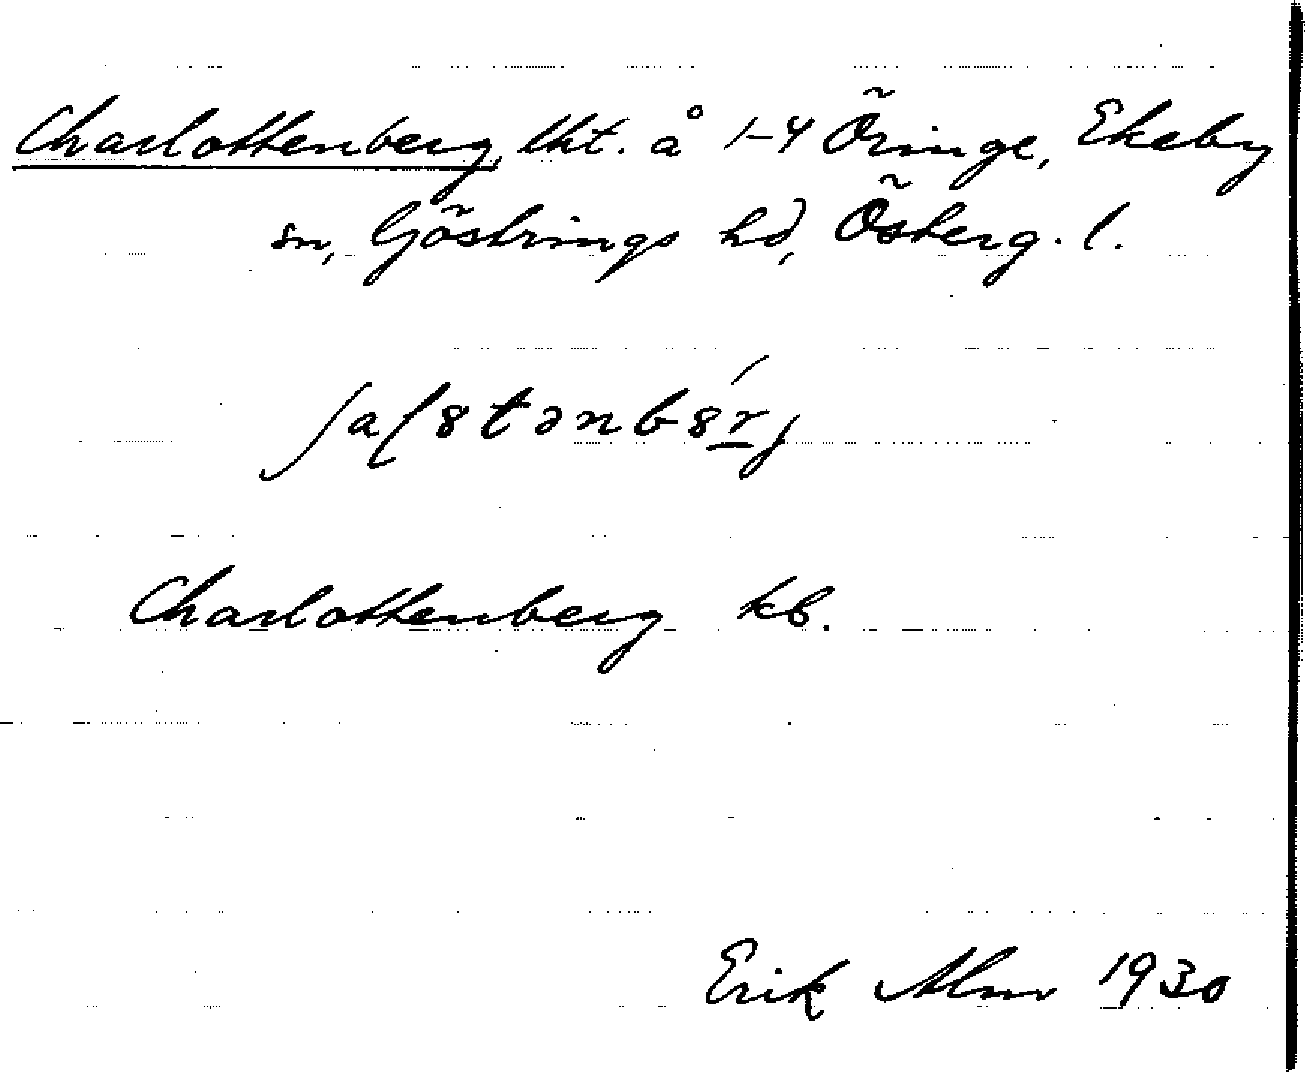 Charlottenberg, lht. å 1-4 Öringe, Ekeby
sn, Göstrings hd, Österg. l.
ʃaɭ8tənb8ŕ̲j
Charlottenberg kb.
Erik Alm 1930